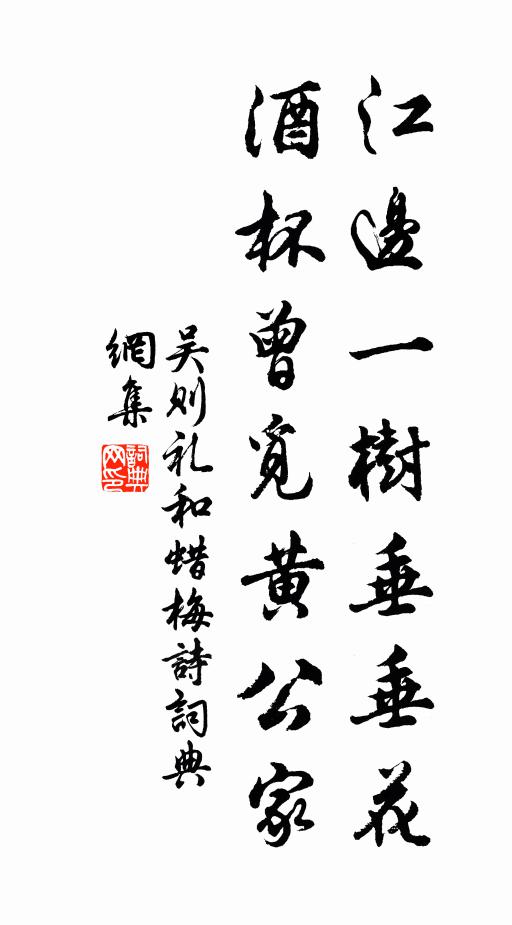 江邊一樹垂垂花
酒杯曾覓黄公家
吴则礼和蜡梅詩詞典
網集
詞典
网印